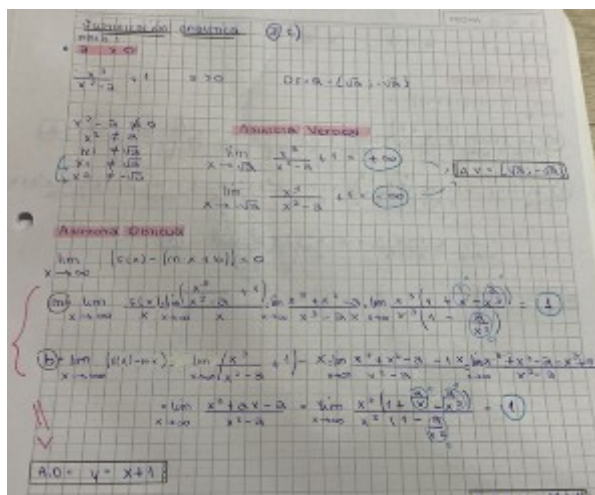 Justificación analítica a) c)
a > 0
x³/(x²-a) + 1 a>0 Df = R - {√a, -√a}
x² - a ≠ 0
x² ≠ a
|x| ≠ √a
x1 ≠ √a
x2 ≠ -√a
Asíntota Vertical
lim x→√a x³/(x²-a) + 1 = +∞
lim x→-√a x³/(x²-a) + 1 = -∞
A.V = {√a, -√a}
Asíntota Oblicua
lim x→∞ |f(x) - (mx+b)| = 0
m = lim x→∞ f(x)/x = lim x→∞ (x³/(x²-a) + 1)/x = lim x→∞ (x³+x²-a)/(x³-ax) = lim x→∞ x³(1 + 1/x - a/x³)/x³(1 - a/x²) = 1
b = lim x→∞ |f(x) - mx| = lim x→∞ (x³/(x²-a) + 1) - x = lim x→∞ (x³+x²-a)/(x²-a) - 1x = lim x→∞ (x³+x²-a-x³+ax)/(x²-a)
= lim x→∞ (x²+ax-a)/(x²-a) = lim x→∞ x²(1 + a/x - a/x²)/x²(1 - a/x²) = 1
A.O = y = x+1